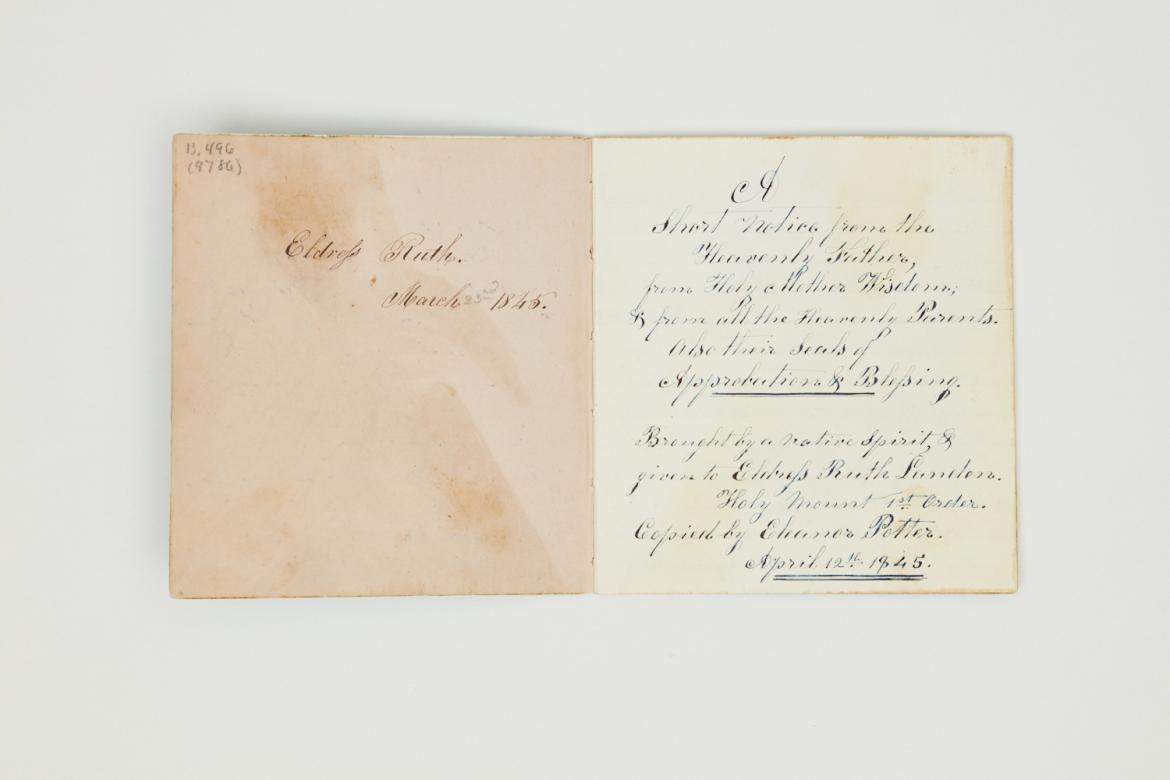 13,496
(9786)
Eldreſs Ruth.
March 23rd 1845.
A
Short Notice from the
Heavenly Father,
from Holy Mother Wisdom;
& from all the Heavenly Parents.
Also their Seals of
Approbation & Bleſsing.
Brought by a native Spirit, &
given to Eldreſs Ruth Landon.
Holy Mount 1st Order.
Copied by Eleanor Potter.
April 12th 1845.